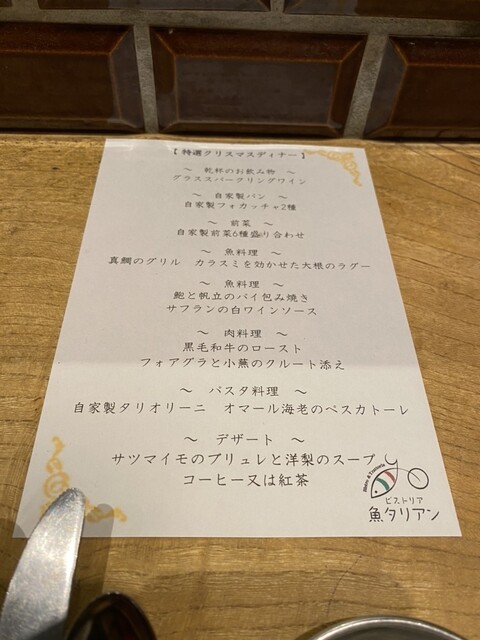 【 特選クリスマスディナー 】
～ 乾杯のお飲み物 ～
グラススパークリングワイン
～ 自家製パン ～
自家製フォカッチャ2種
～ 前菜 ～
自家製前菜6種盛り合わせ
～ 魚料理 ～
真鯛のグリル カラスミを効かせた大根のラグー
～ 魚料理 ～
鮑と帆立のパイ包み焼き
サフランの白ワインソース
～ 肉料理 ～
黒毛和牛のロースト
フォアグラと小蕪のクルート添え
～ パスタ料理 ～
自家製タリオリーニ オマール海老のペスカトーレ
～ デザート ～
サツマイモのブリュレと洋梨のスープ
コーヒー又は紅茶
ビストリア
魚タリアン